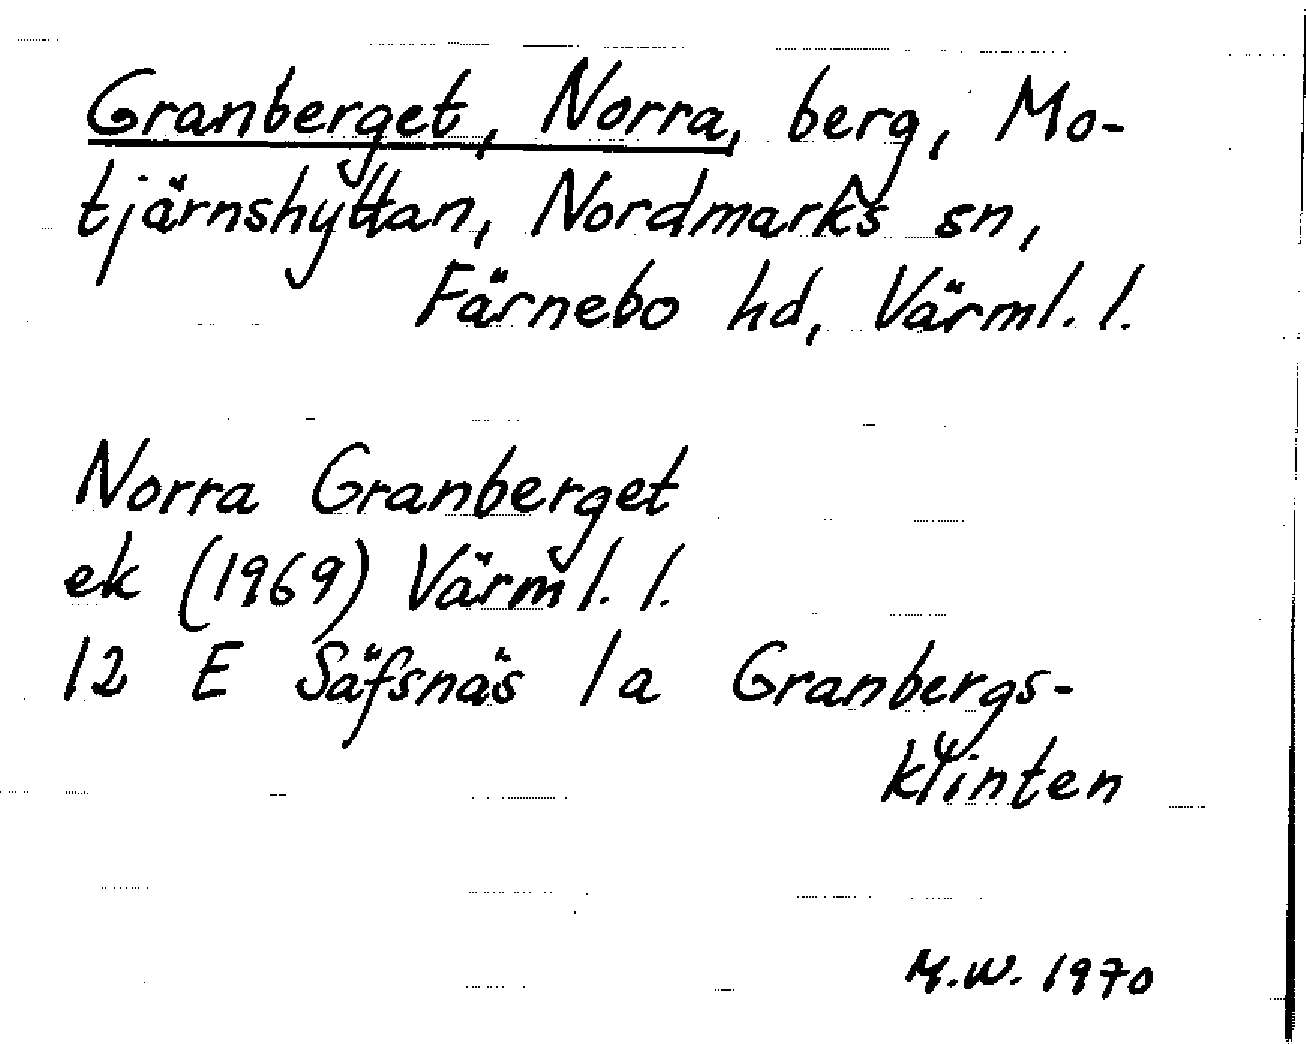 Granberget, Norra, berg, Mo-
tjärnshyttan, Nordmarks sn,
Färnebo hd, Värml. l.
Norra Granberget
ek (1969) Värml. l.
12 E Säfsnäs 1a Granbergs-
klinten
M.W. 1970